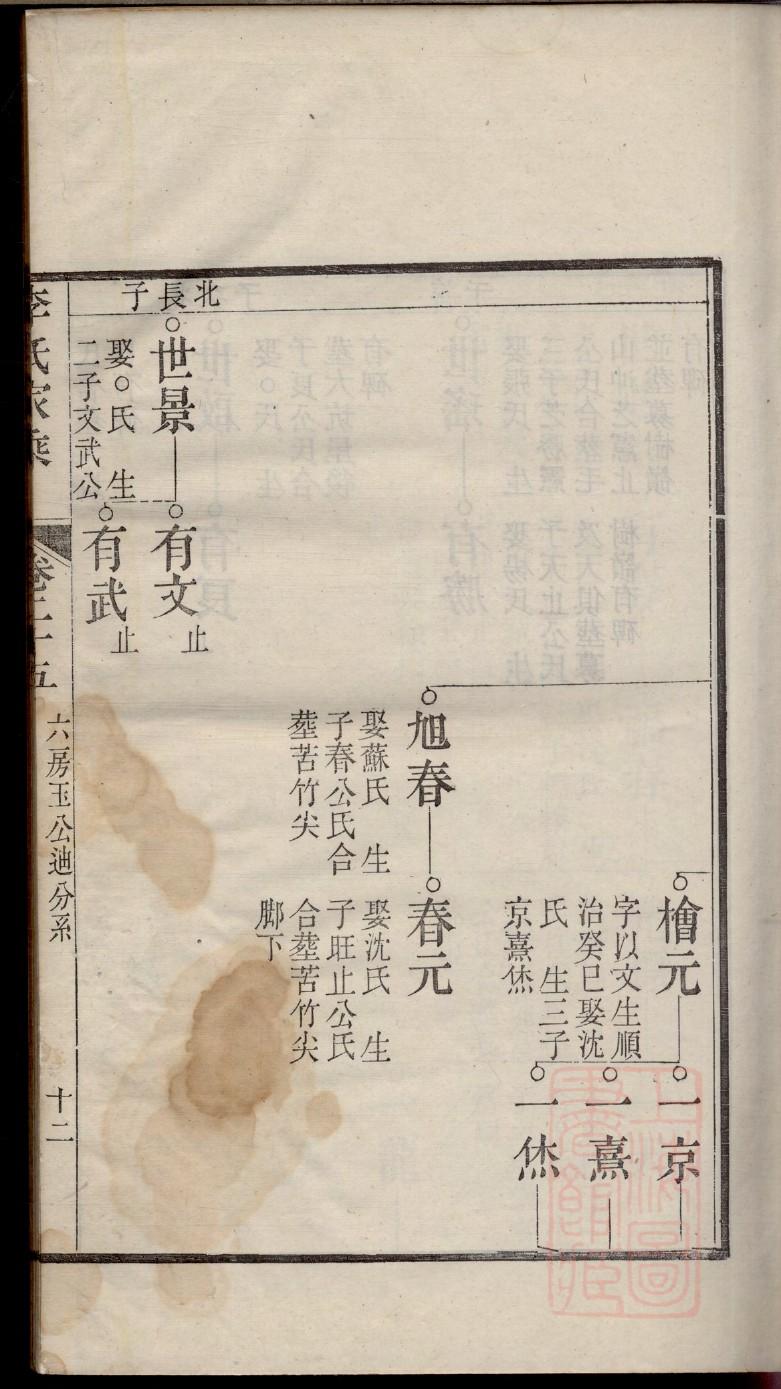 檜元
字以文生順
治癸巳娶沈
氏　生三子
京熹烋
一京
一熹
一烋
旭春
娶蘇氏　生
子春公氏合
塟苦竹尖
春元
娶沈氏　生
子旺止公氏
合塟苦竹尖
脚下
北長子
世景
娶○氏　生
二子文武公
有文
止
有武
止
李氏家乘
卷二十五
六房玉公迪分系
十二